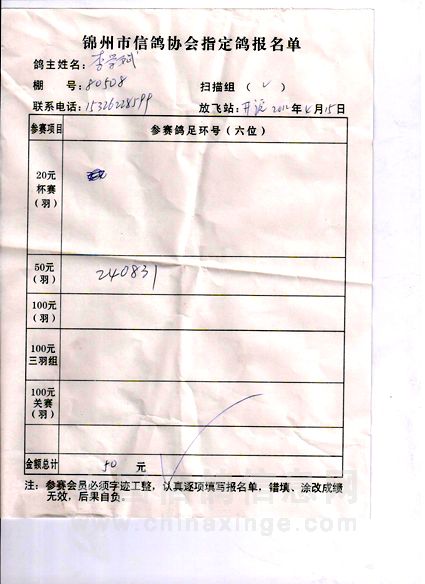 锦州市信鸽协会指定鸽报名单
鸽主姓名：李学斌
棚　号：80508　扫描组（✓）
联系电话：15326228599　放飞站：开沅 2012年4月15日
参赛项目　参赛鸽足环号（六位）
20元
杯赛
（羽）
50元
（羽）　240831
100元
（羽）
100元
三羽组
100元
关赛
（羽）
金额总计　50 元
注：参赛会员必须字迹工整，认真逐项填写报名单，错填、涂改成绩
无效，后果自负。
www.chinaxinge.com